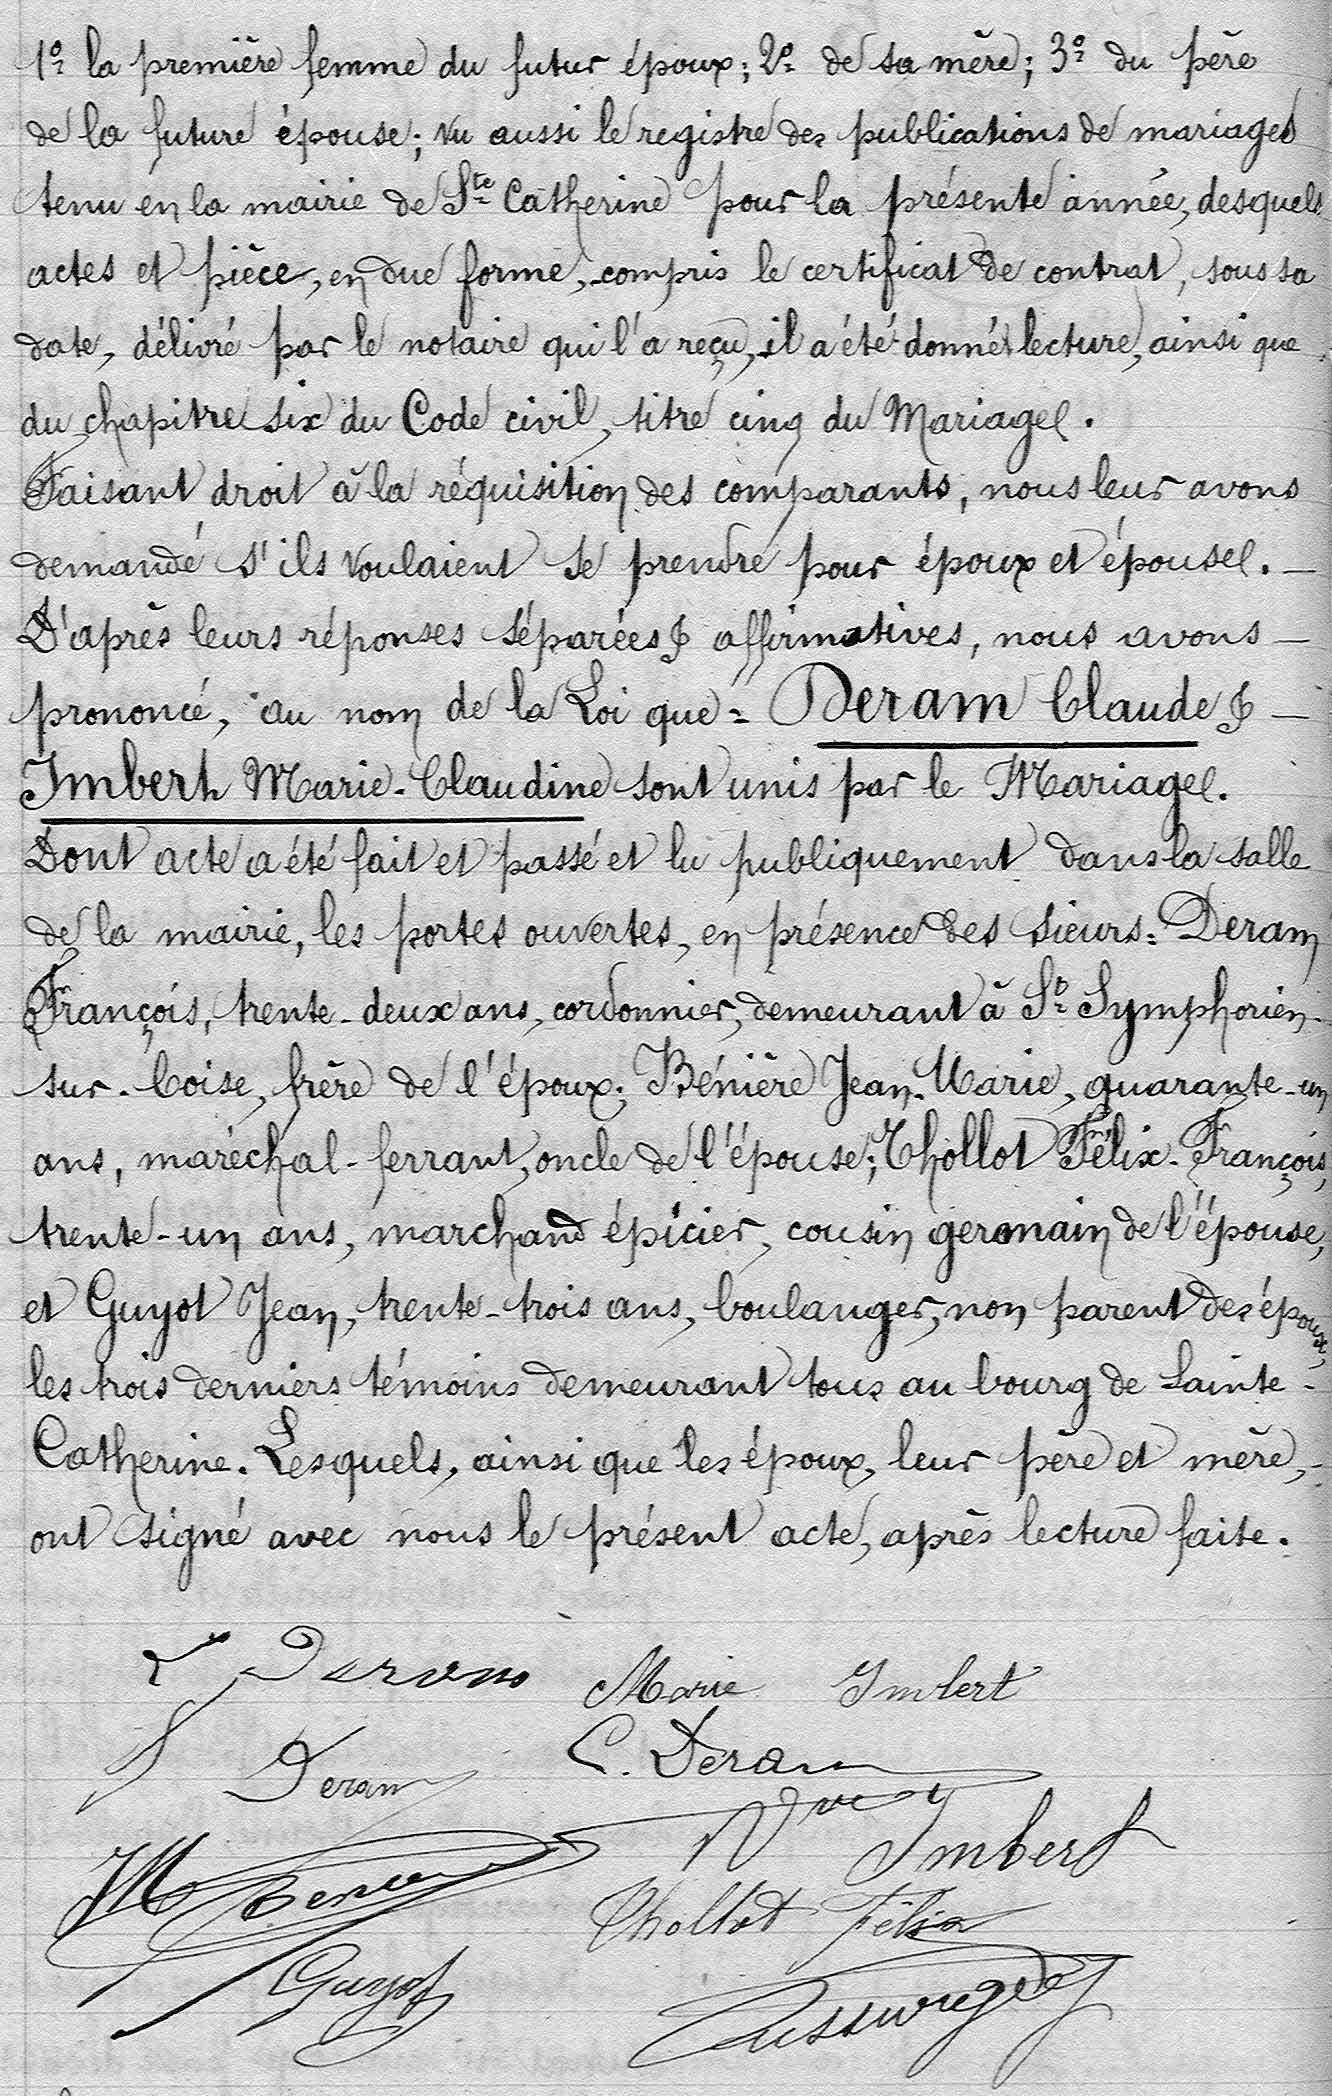 1º la première femme du futur époux; 2º de sa mère; 3º du père
de la future épouse; vu aussi le registre des publications de mariages
tenu en la mairie de Ste Catherine pour la présente année, desquels
actes et pièce, en due forme, compris le certificat de contrat, sous sa
date, délivré par le notaire qui l'a reçu, il a été donné lecture, ainsi que
du chapitre six du Code civil, titre cinq du Mariage.
Faisant droit à la réquisition des comparants, nous leur avons
demandé s'ils voulaient se prendre pour époux et épouse. –
D'après leurs réponses séparées & affirmatives, nous avons –
prononcé, au nom de la Loi que = Deram Claude & –
Imbert Marie-Claudine sont unis par le Mariage.
Dont acte a été fait et passé et lu publiquement dans la salle
de la mairie, les portes ouvertes, en présence des sieurs: Deram
François, trente-deux ans, cordonnier, demeurant à St Symphorien-
sur-Coise, frère de l'époux; Bénière Jean-Marie, quarante-un
ans, maréchal-ferrant, oncle de l'épouse; Thollot Félix-François,
trente-un ans, marchand épicier, cousin germain de l'épouse,
et Guyot Jean, trente-trois ans, boulanger, non parent des époux,
les trois derniers témoins demeurant tous au bourg de Sainte-
Catherine. Lesquels, ainsi que les époux, leur père et mère, -
ont signé avec nous le présent acte, après lecture faite.
Deram Marie Imbert
Deram C. Deram
Vve Imbert
JM Beniere Thollot Félix
Guyot